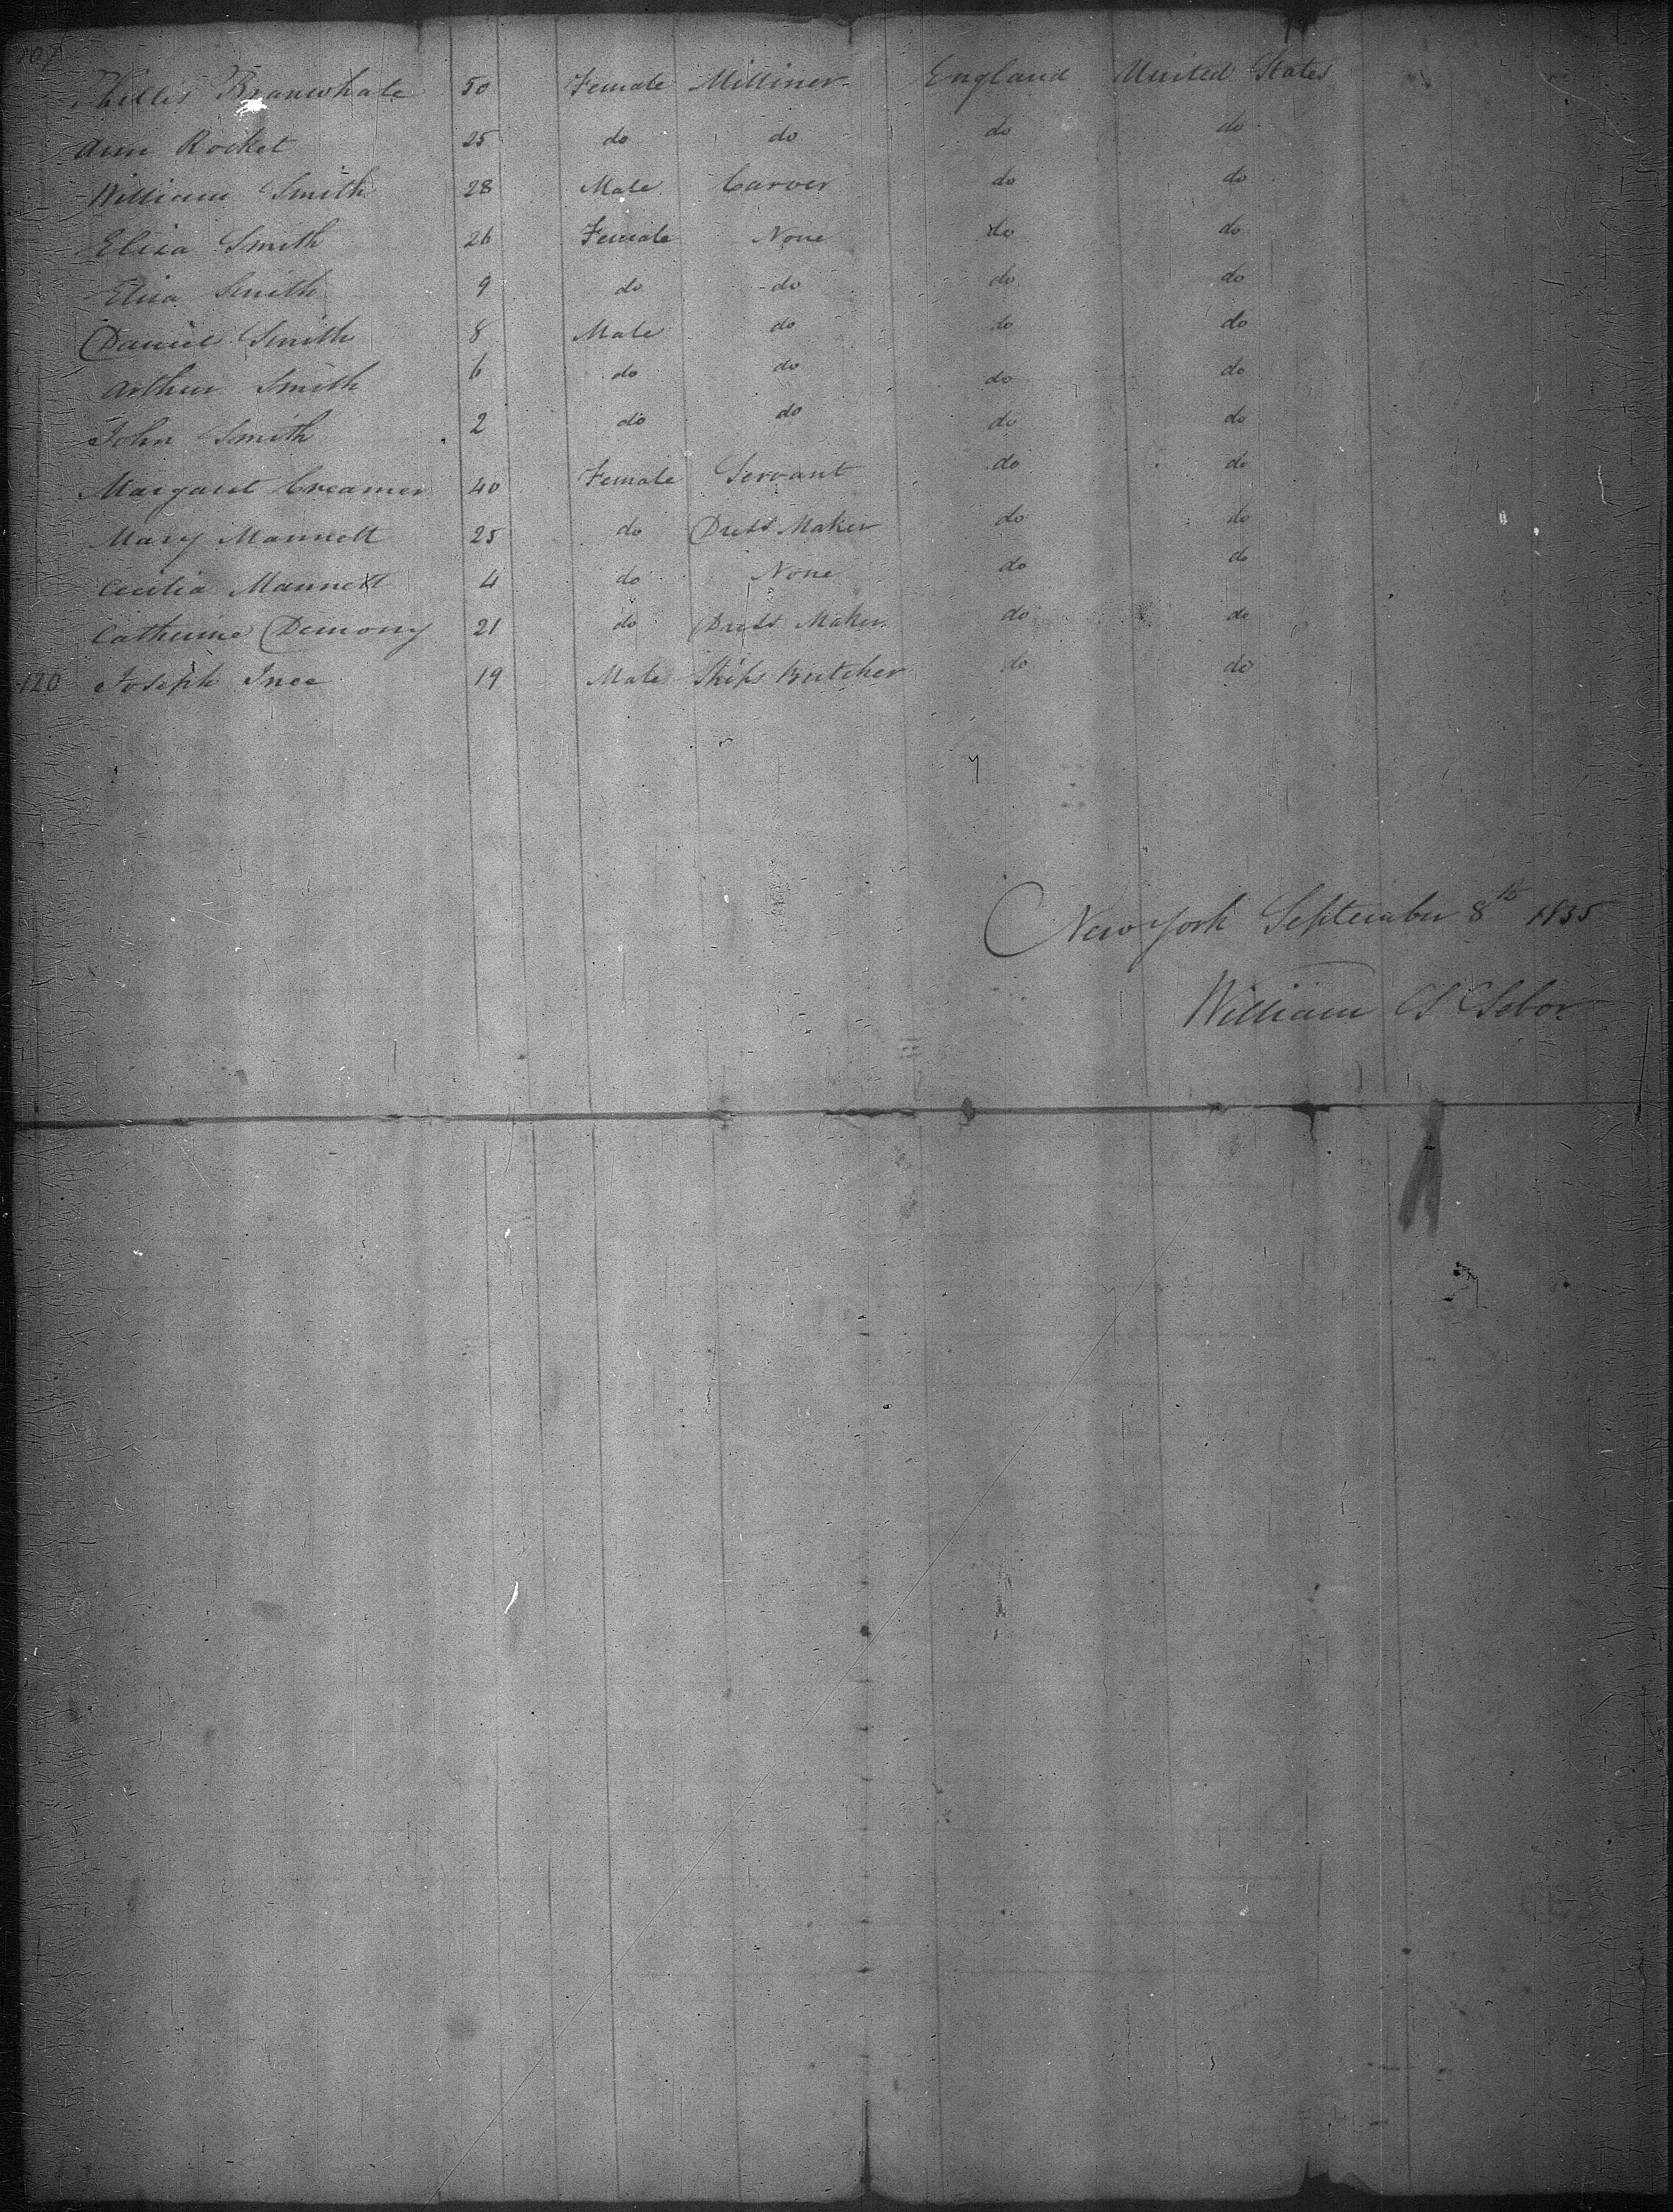 107
Phillis Branwhate 50 Female Milliner England United States
Ann Rocket 25 do do do do
William Smith 28 Male Carver do do
Eliza Smith 26 Female None do do
Eliza Smith 9 do do do do
Daniel Smith 8 Male do do do
Arthur Smith 6 do do do do
John Smith 2 do do do do
Margaret Creamer 40 Female Servant do do
Mary Mannett 25 do Dress Maker do do
Cecilia Mannett 4 do None do do
Catherine Demony 21 do Dress Maker do do
120 Joseph Ince 19 Male Ships Butcher do do
New York September 8th 1835
William S Sebor